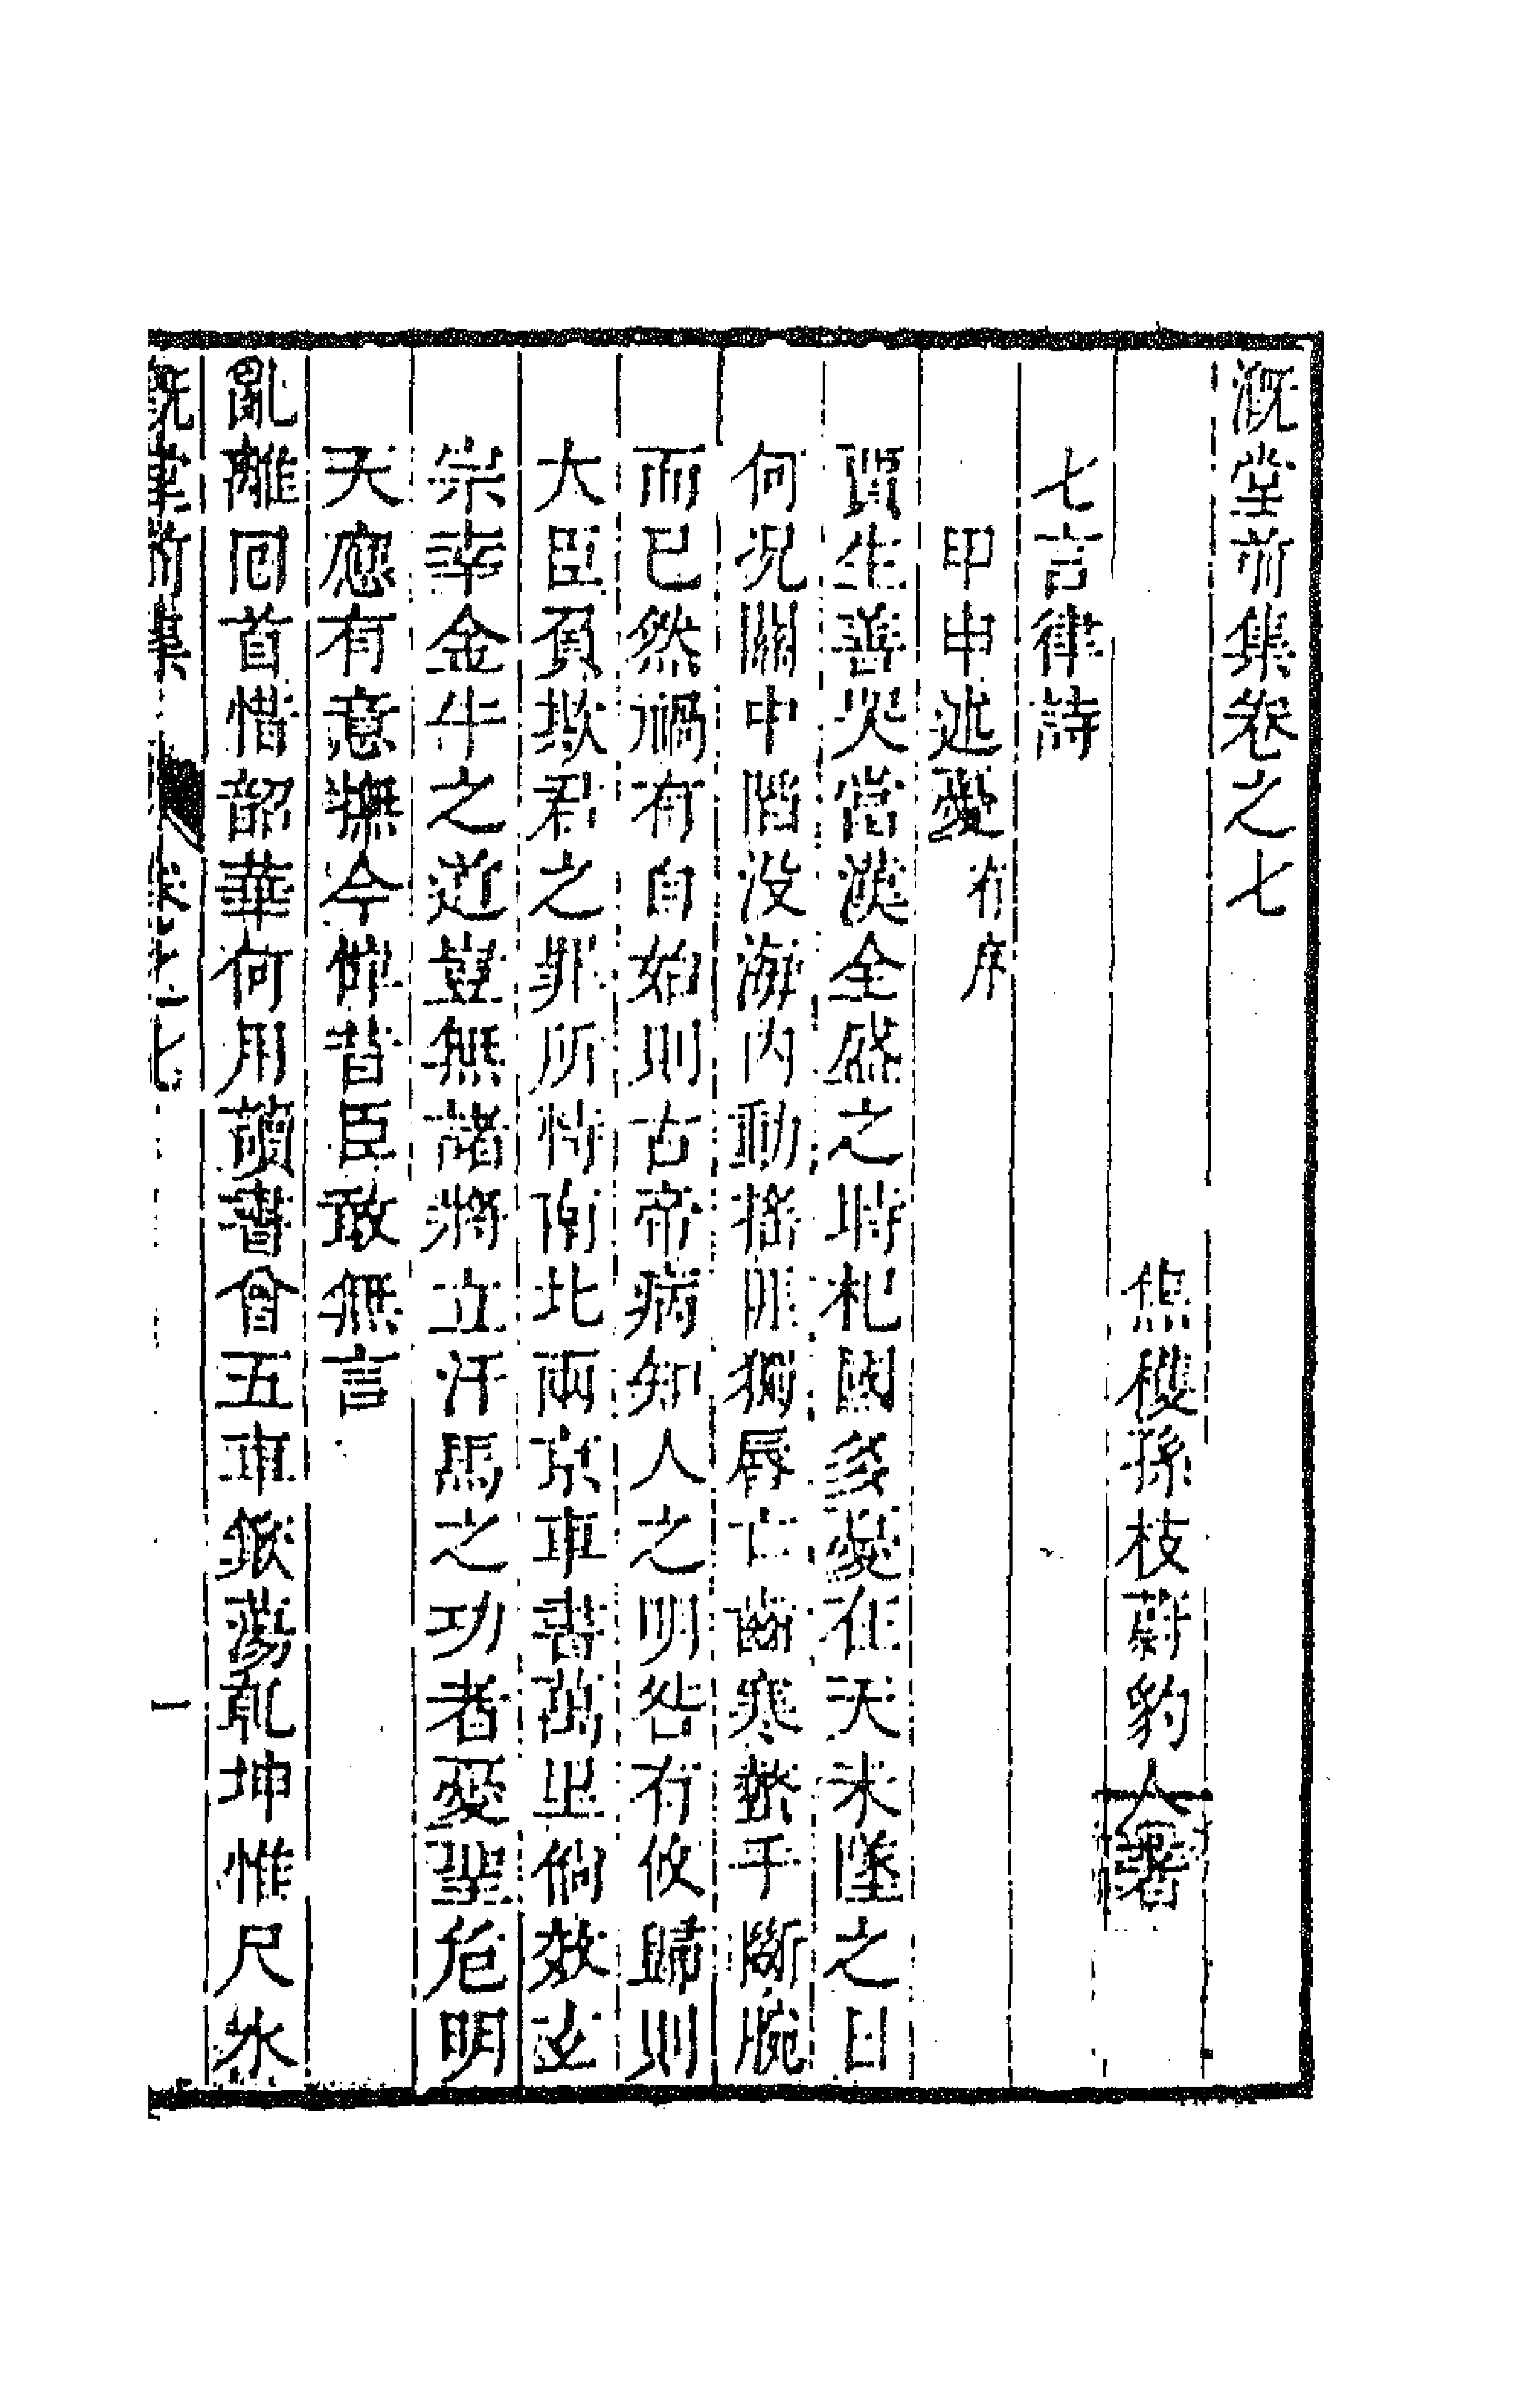 溉堂前集卷之七
焦穫孫枝蔚豹人著
七言律詩
甲申述憂有序
賈生善哭當漢全盛之時杞國多憂在天未墜之日
何況關中陷没海内動搖非獨脣亡齒寒螫手斷腕
而已然禍有自始則古帝病知人之明咎有攸歸則
大臣負欺君之罪所恃南北兩京車書萬里倘效玄
宗幸金牛之道豈無諸將立汗馬之功者憂聖危明
天應有意撫今悼昔臣敢無言
亂離囘首惜韶華何用讀書曾五車蕩乾坤惟尺水
溉堂前集 卷之七 一